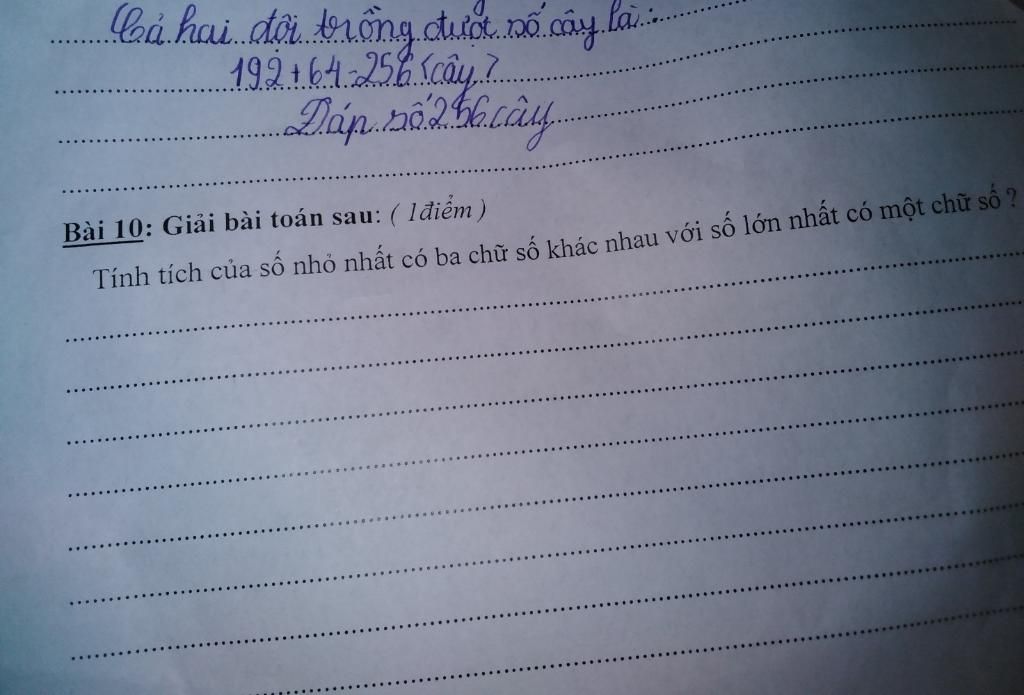 Cả hai đội trồng được số cây là:
192+64=256 (cây)
Đáp số 256 cây
Bài 10: Giải bài toán sau: ( 1điểm )
Tính tích của số nhỏ nhất có ba chữ số khác nhau với số lớn nhất có một chữ số ?